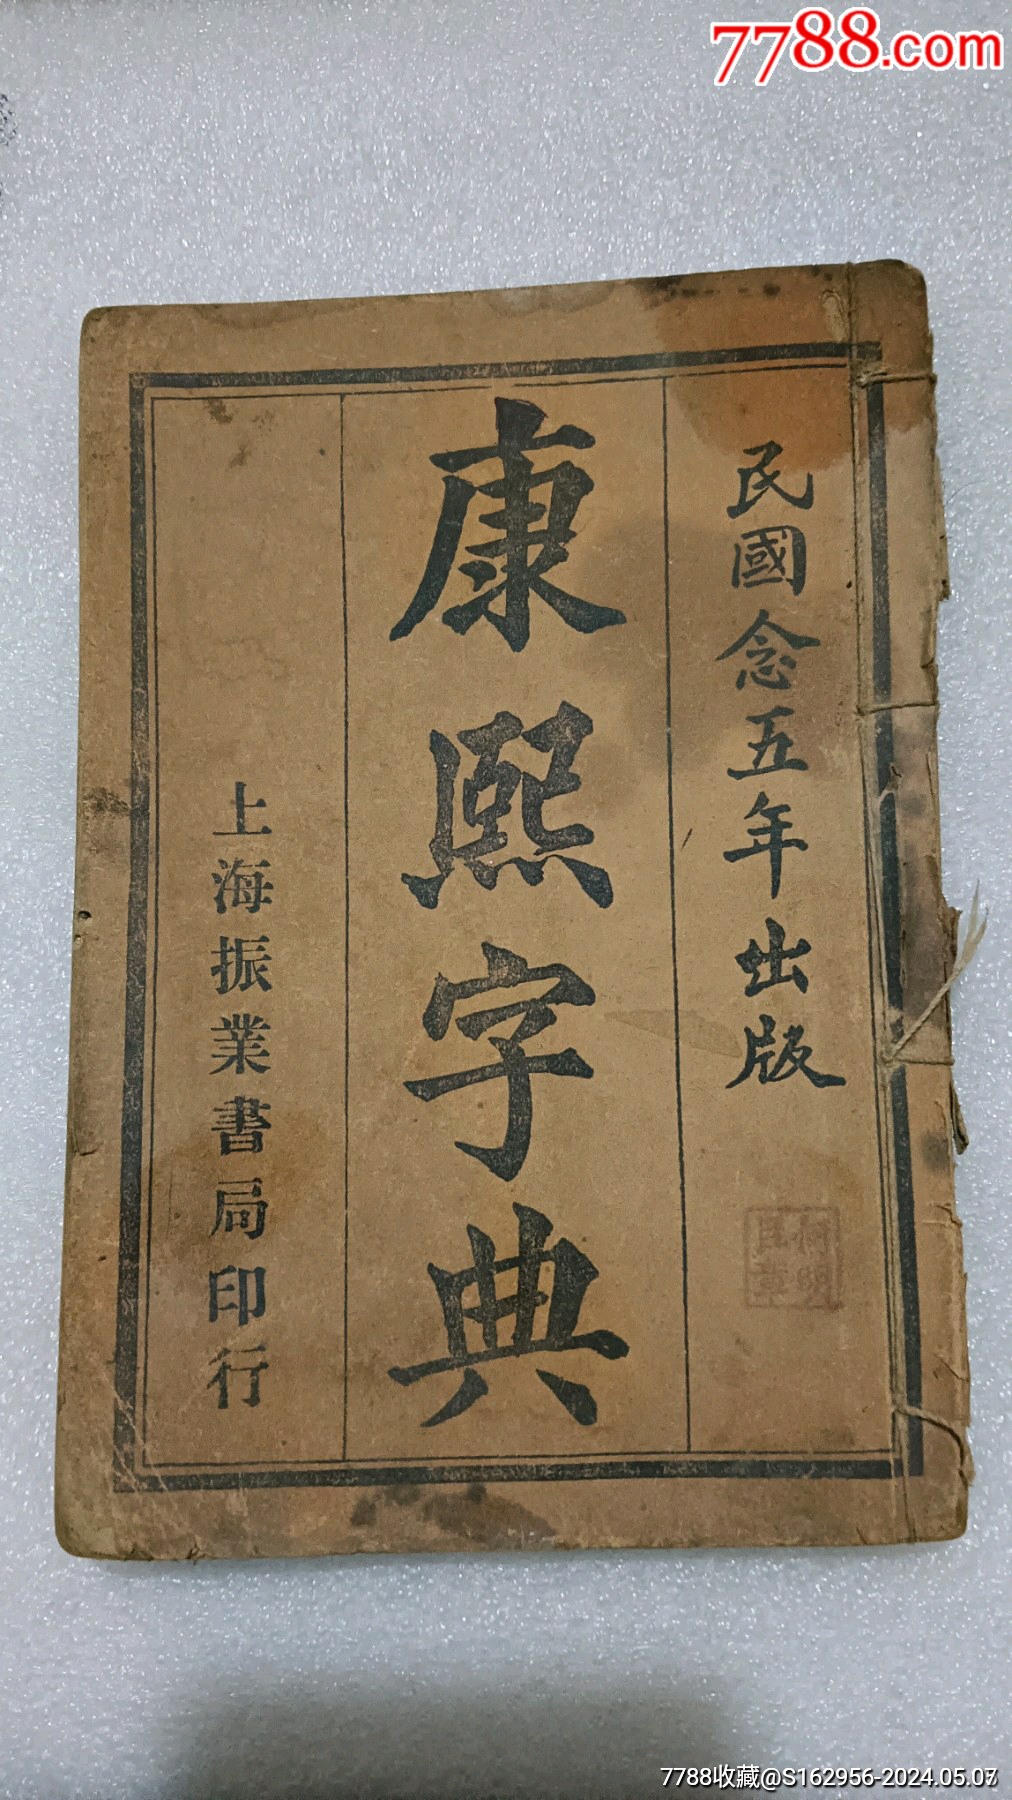 7788.com
民國念五年出版
康熙字典
上海振業書局印行
7788收藏@S162956-2024.05.07